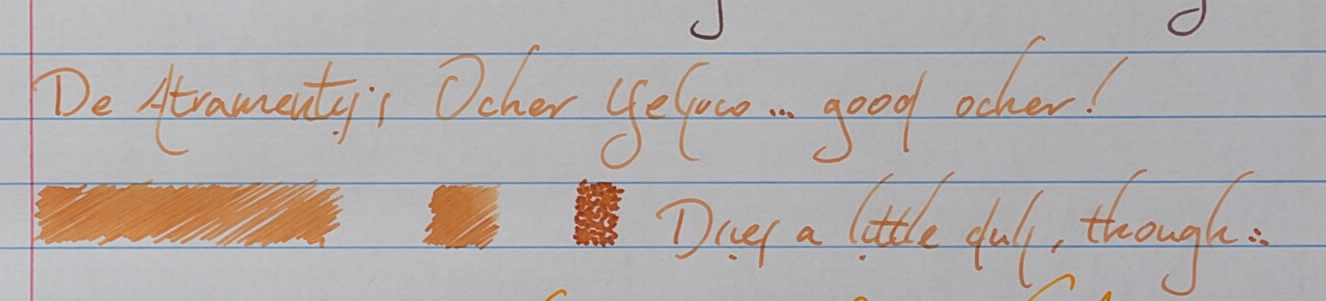 De Atramentis Ocher Yellow... good ocher!
Dries a little dull, though...